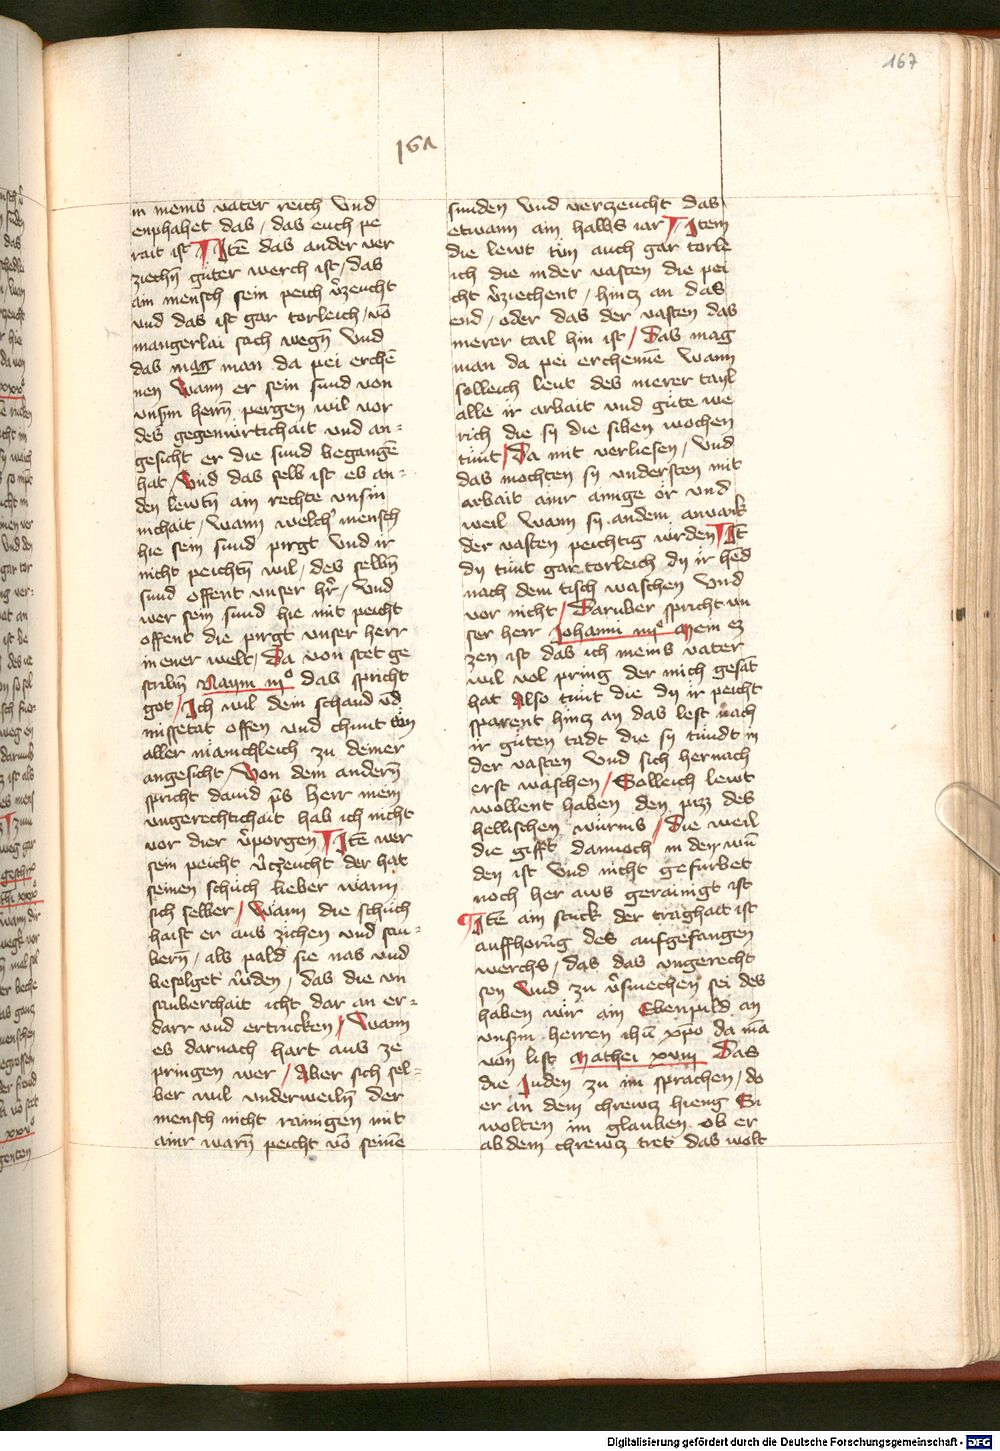 167
164
in meins vater reich Und
enphahet das / das euch pe
rait ist Jtē das ander ver
ziechn̄ guter werch ist / das
ain mensch sein peich v̄zeucht
vnd das ist gar torleich / vō
mangerlai sach wegn̄ Vnd
das mag man da pei erchē
nen Wann er sein sund von
vnsm̄ herrn̄ pergen wil vor
des gegenwurtichait vnd an=
gesicht er die sund begangē
hat / Vnd das selb ist es an=
den lewtn̄ ain rechte vnsin
nichait / wann welch' mensch
hie sein sund pirgt Vnd ir
nicht peichtn̄ wil / des selbn̄
sund offent vnser hr̄ / Vnd
wer sein sund hie mit peicht
offent die pirgt vnser herr
in ener welt / Da von stet ge
scribn̄ Naum iijo das spricht
got / Ich wil dein schand vn̄d
missetat offen vnd chunt tün
aller mānichleich zu deiner
angesicht / Von dem andern̄
spricht dauid p̄s herr mein
vngerechtichait hab ich nicht
vor dier v̄porgen Jtē wer
sein peicht v̄tzeucht der hat
seinen schuch lieber wann
sich selber / Wann die schuch
haist er aus zichen vnd sau=
bern̄ / als pald sie nas vnd
besolget w̄rden / das die vn
sauberchait icht dar an er=
darr vnd ertrucken / Wann
es darnach hart aus ze
pringen wer / Aber sich sel=
ber wil vnderweiln̄ der
mensch nicht rainigen mit
ainr warn̄ peicht vō seinē
sunden vnd verczeucht das
etwann ain halbs iar Jtem
die lewt tün auch gar torle
ich die in der vasten die pei
cht v̄ziechent / hincz an das
end / oder das der vasten das
merer tail hin ist / Das mag
man da pei erchennē Wann
solleich leut des merer tayl
alle ir arbait vnd güte we
rich die sy die siben wochen
tünt / Da mit verliesen / Vnd
das mochten sy vndersten mit
arbait ainr ainige ör vnd
weil Wann sy an dem anvank
der vasten peichtig wirden Jtē
dy tünt gar torleich dy ir hēnd
nach dem tisch waschen Vnd
vor nicht / Daruber spricht vn
ser herr Johanni iiijo Mein ez
zen ist das ich meins vater
wil vol pring der mich gesāt
hat Also tünt die dy ir peicht
sparent hincz an das lest nach
ir guten tadt die sy tündt in
der vasten Vnd sich hernach
erst waschen / Solleich lewt
wollent haben den pizz des
hellischen würms / Die weil
die gifft dannoch in den wū
den ist Vnd nicht gefurbet
noch her aws gerainigt ist
Jtē ain stuck der träghait ist
auffhorūg des aufgefangen
werchs / das das vngerecht
sey Vnd zu v̄smechen sei des
haben wir ain Ebenpild an
vnsm̄ herren ihū xp̄o da mā
von list Mathei xxvij Das
die Juden zu im sprachen / do
er an dem chrewcz hieng Si
wolten im glauben ob er
ab dem chrewcz tret das wolt
Digitalisierung gefördert durch die Deutsche Forschungsgemeinschaft - DFG